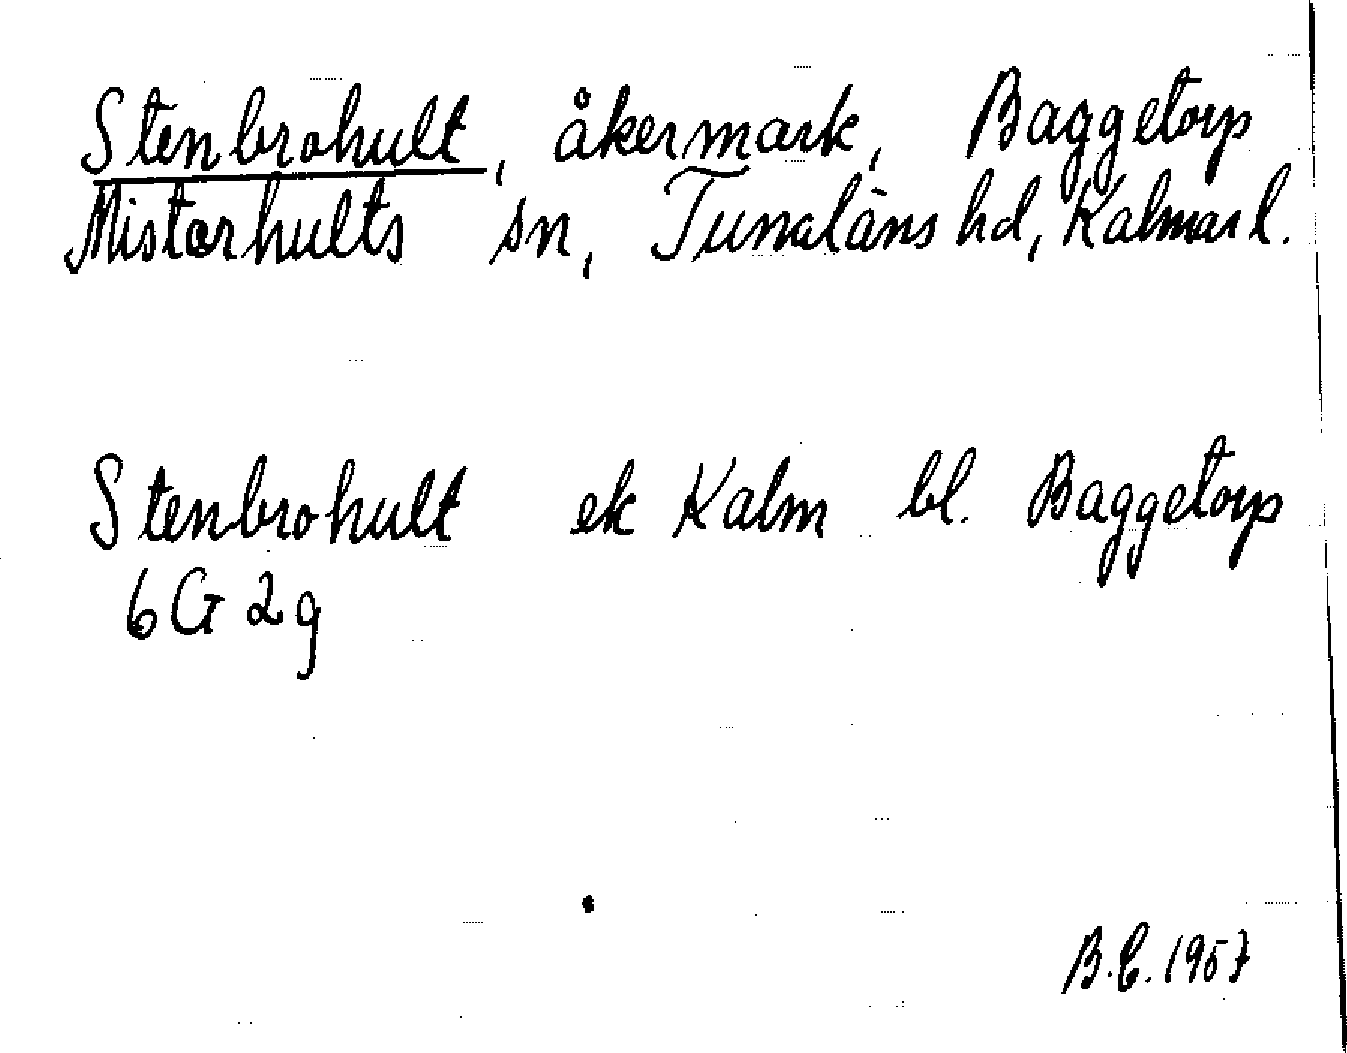 Stenbrohult, åkermark, Baggetorp
Misterhults sn, Tunaläns hd, Kalmar l.
Stenbrohult ek Kalm bl. Baggetorp
6 G 2 g
B.E. 1957